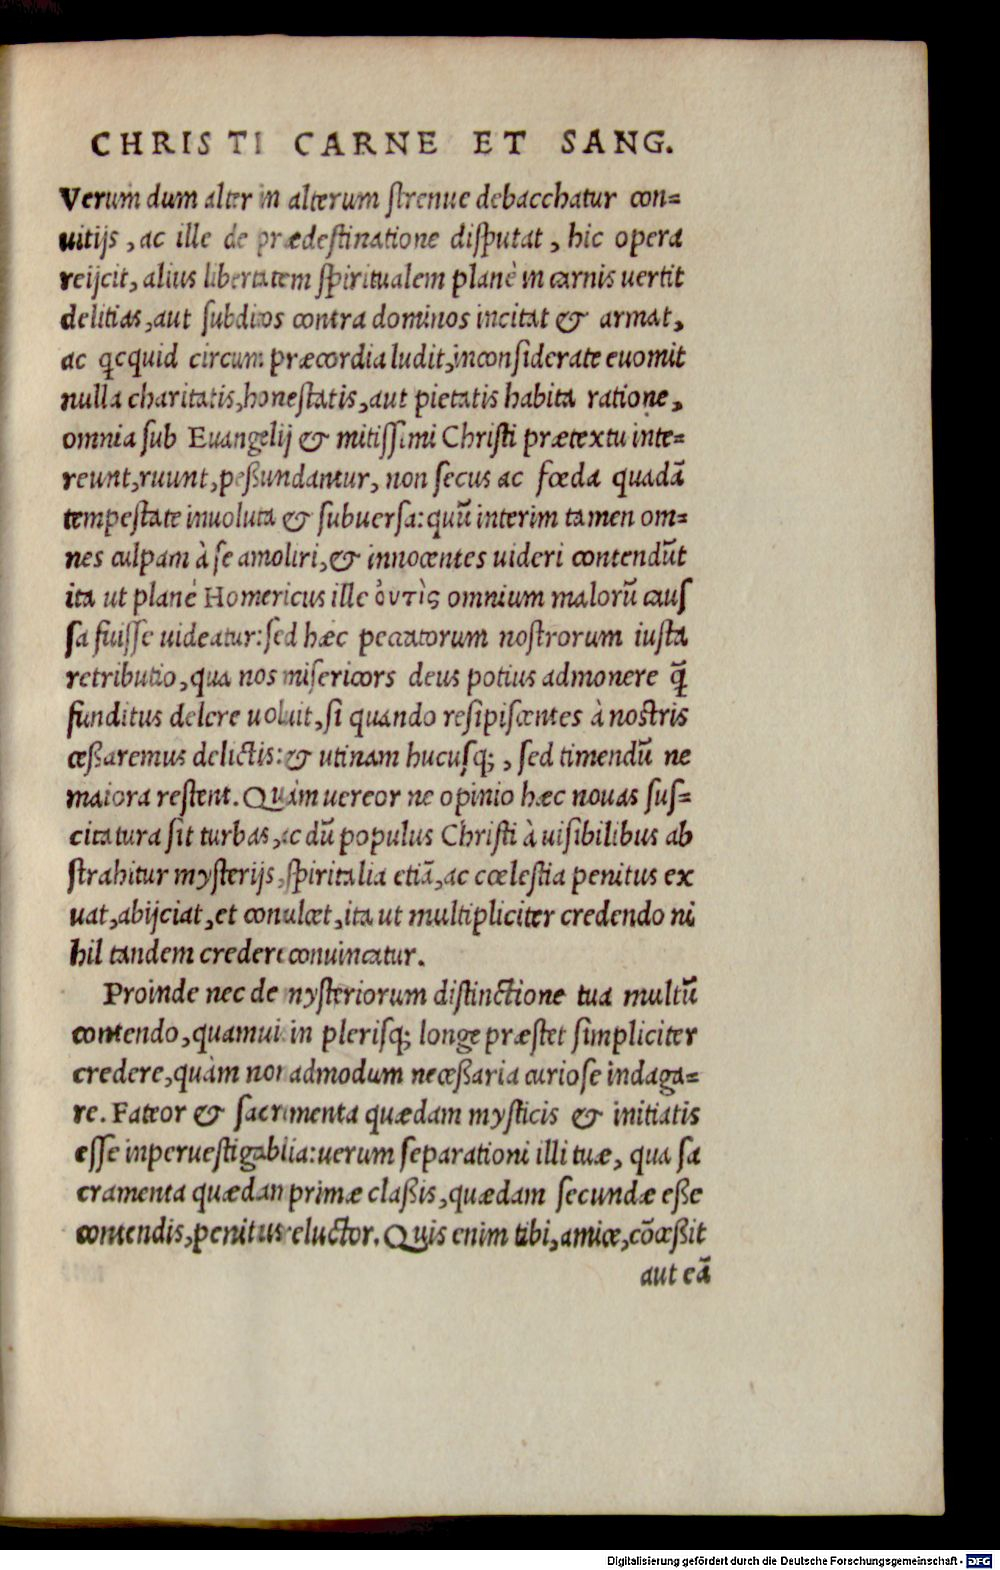 CHRISTI CARNE ET SANG.
Verum dum alter in alterum ſtrenue debacchatur con=
uitijs, ac ille de prædeſtinatione diſputat, hic opera
reijcit, alius libertatem ſpiritualem planè in carnis uertit
delitias, aut ſubditos contra dominos incitat & armat,
ac qcquid circum præcordia ludit, inconſiderate euomit
nulla charitatis, honeſtatis, aut pietatis habita ratione,
omnia ſub Euangelij & mitiſſimi Chriſti prætextu inte=
reunt, ruunt, peßundantur, non ſecus ac fœda quadā
tempeſtate inuoluta & ſubuerſa: quū interim tamen om=
nes culpam à ſe amoliri, & innocentes uideri contendūt
ita ut planè Homericus ille ὀυτὶς omnium malorū cauſ
ſa fuiſſe uideatur: ſed hæc peccatorum noſtrorum iuſta
retributio, qua nos miſericors deus potius admonere q̃
funditus delere uoluit, ſi quando reſipiſcentes à noſtris
ceßaremus delictis: & utinam hucuſq;, ſed timendū ne
maiora reſtent. Quàm uereor ne opinio hæc nouas ſuſ=
citatura ſit turbas, ac dū populus Chriſti à uiſibilibus ab
ſtrahitur myſterijs, ſpiritalia etiā, ac cœleſtia penitus ex
uat, abijciat, et conulcet, ita ut multipliciter credendo ni
hil tandem credere conuincatur.
Proinde nec de myſteriorum diſtinctione tua multū
contendo, quamuis in pleriſq; longe præſtet ſimpliciter
credere, quàm non admodum neceßaria curioſe indaga=
re. Fateor & ſacramenta quædam myſticis & initiatis
eſſe inperueſtigablia: uerum ſeparationi illi tuæ, qua ſa
cramenta quædam primæ claßis, quædam ſecundæ eße
contendis, penitus reluctor. Quis enim tibi, amice, cōceßit
aut eā
Digitalisierung gefördert durch die Deutsche Forschungsgemeinschaft - DFG